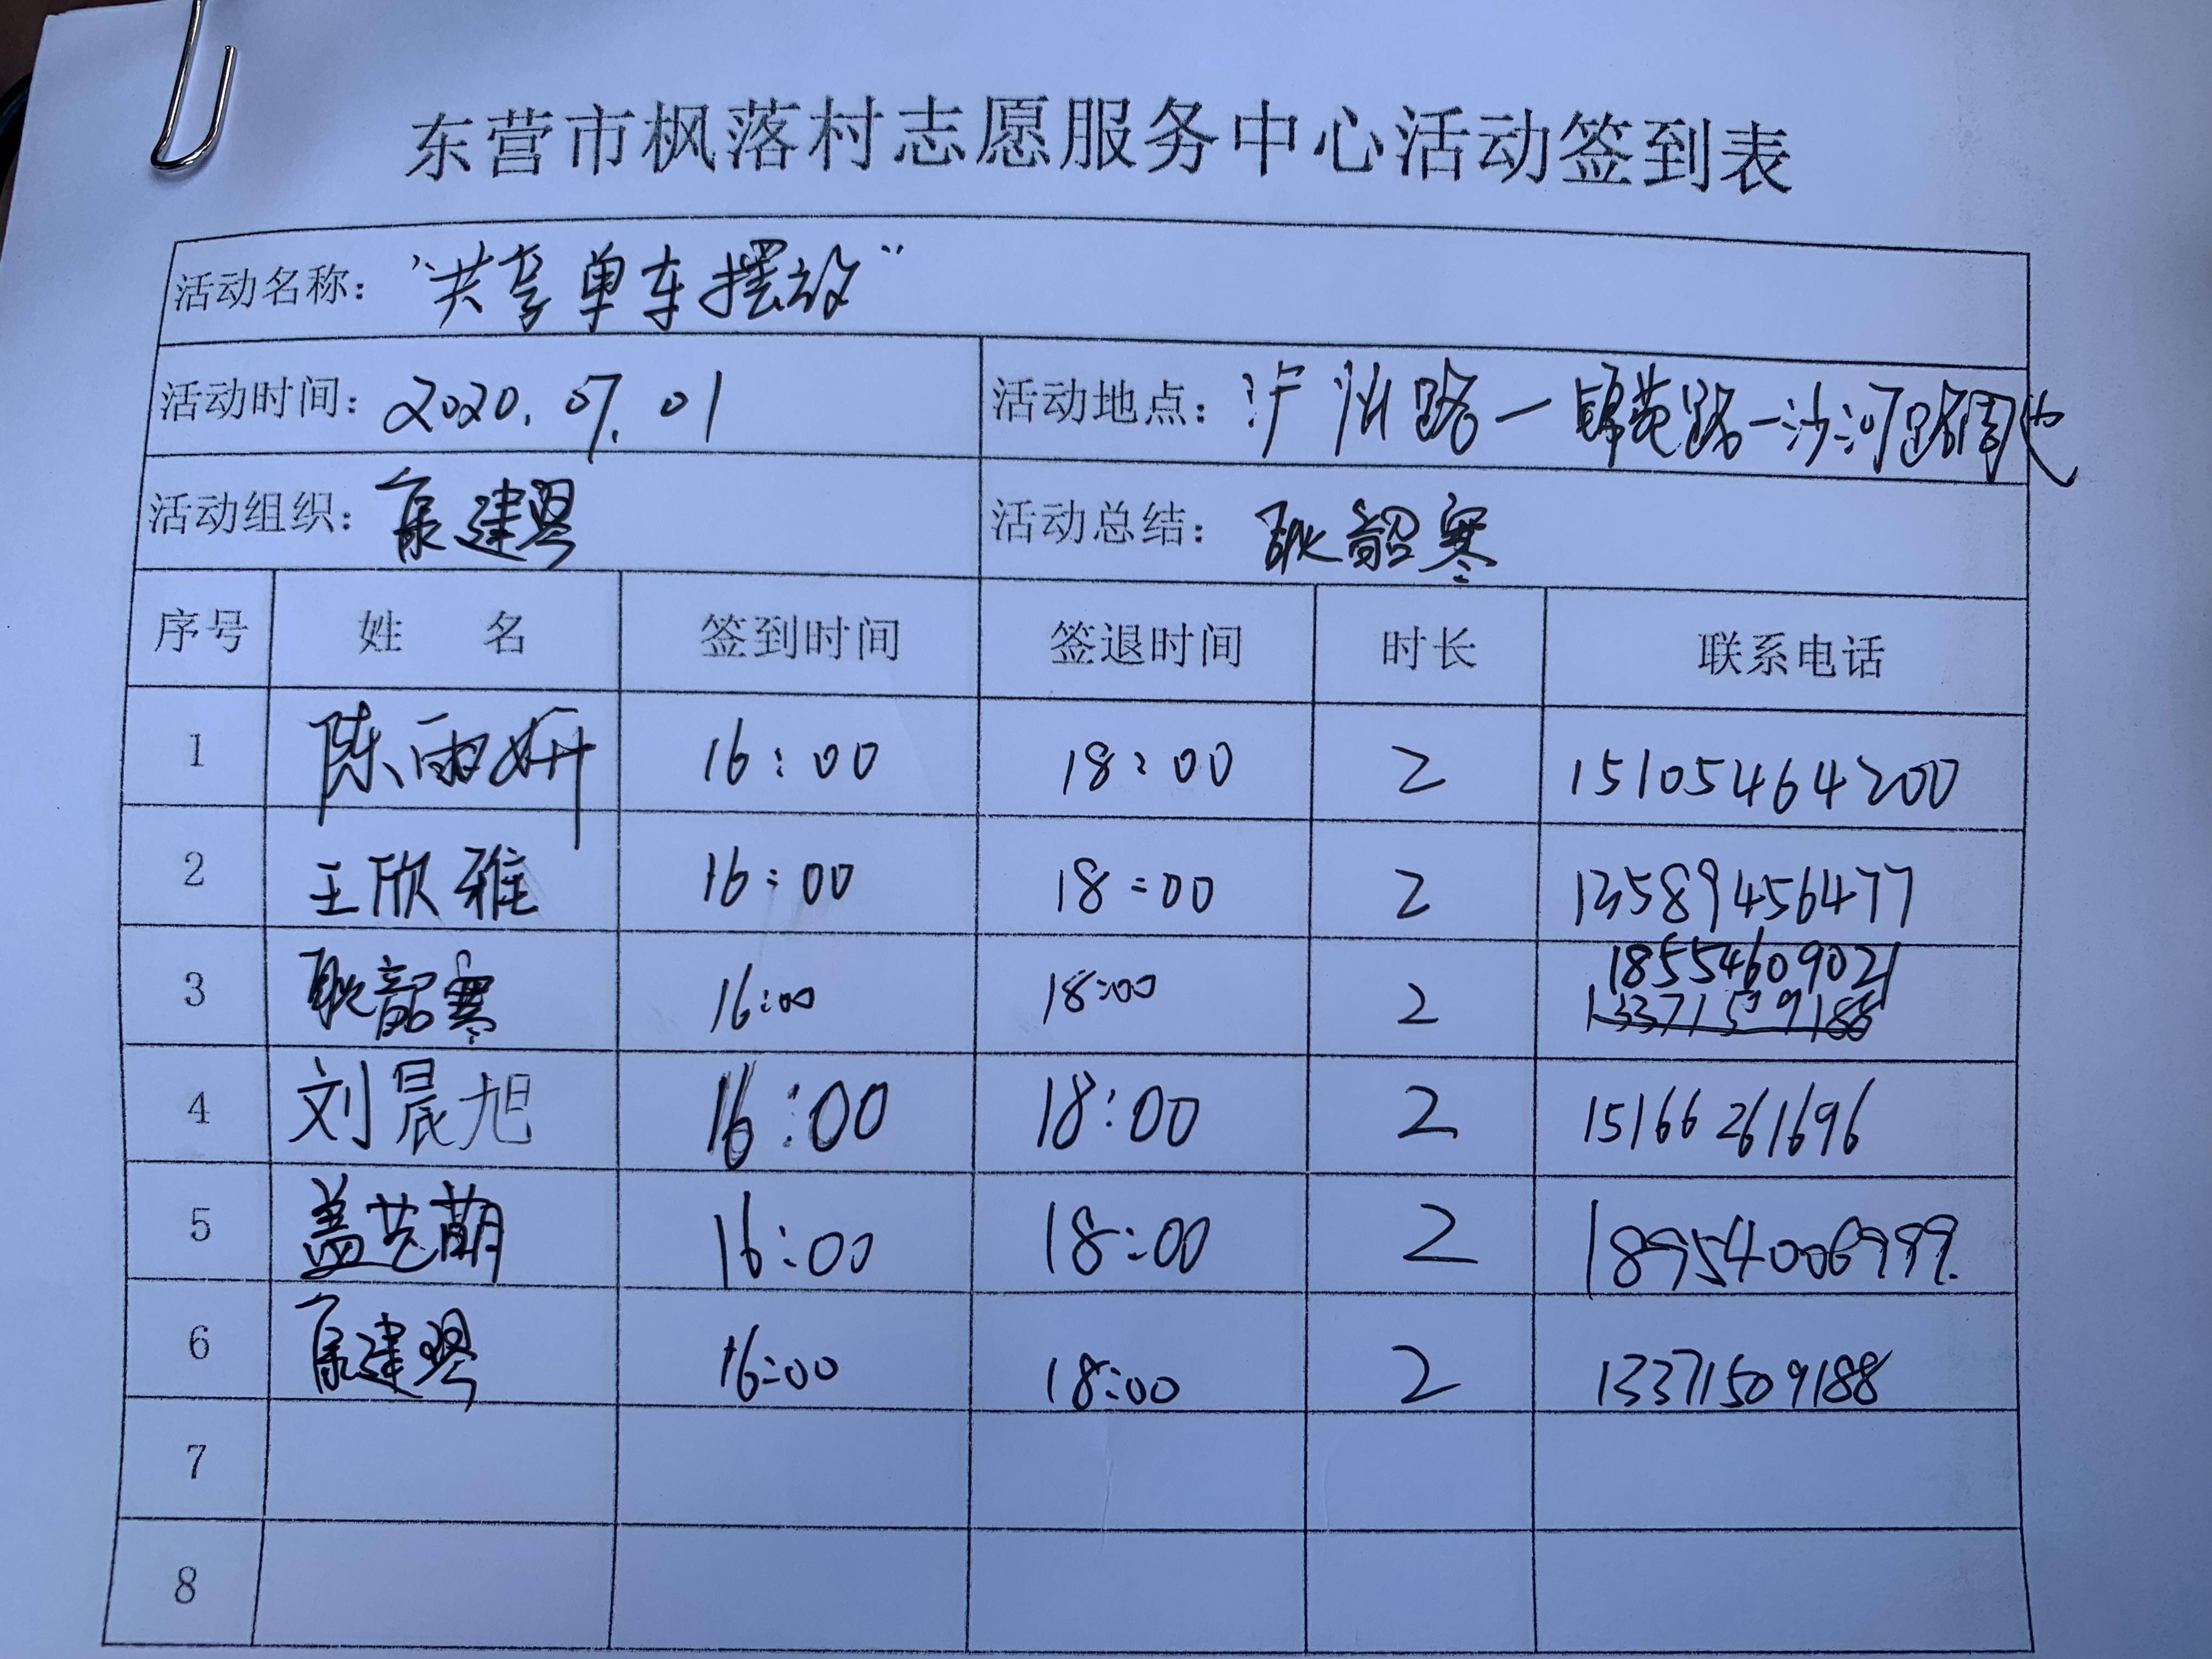 东营市枫落村志愿服务中心活动签到表
活动名称：“共享单车摆放”
活动时间：2020.07.01 活动地点：泸州路一锦苑路一沙河路周边
活动组织： 建翠 活动总结：耿韶寒
序号 姓 名 签到时间 签退时间 时长 联系电话
1 陈雨妍 16:00 18:00 2 15105464200
2 王欣雅 16:00 18:00 2 13589456477
3 耿韶寒 16:00 18:00 2 18554609021
13371509188
4 刘晨旭 16:00 18:00 2 15166261696
5 盖艺萌 16:00 18:00 2 18954006999.
6 建翠 16:00 18:00 2 13371509188
7
8